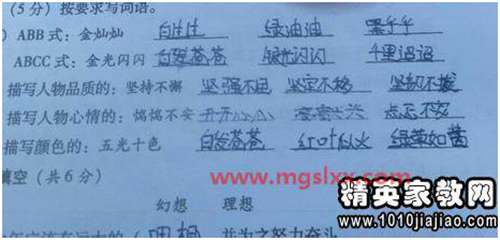 (5分)按要求写词语。
) ABB式：金灿灿 白生生 绿油油 黑乎乎
ABCC式：金光闪闪 白发苍苍 银光闪闪 千里迢迢
描写人物品质的：坚持不懈 坚强不屈 坚定不移 坚韧不拔
描写人物心情的：惴惴不安 忐忑不安
描写颜色的：五光十色 白发苍苍 红叶似火 绿草如茵
填空(共6分)
www.mgslxx.com
幻想 理想
精英家教网
并为之努力奋斗
www.1010jiajiao.com